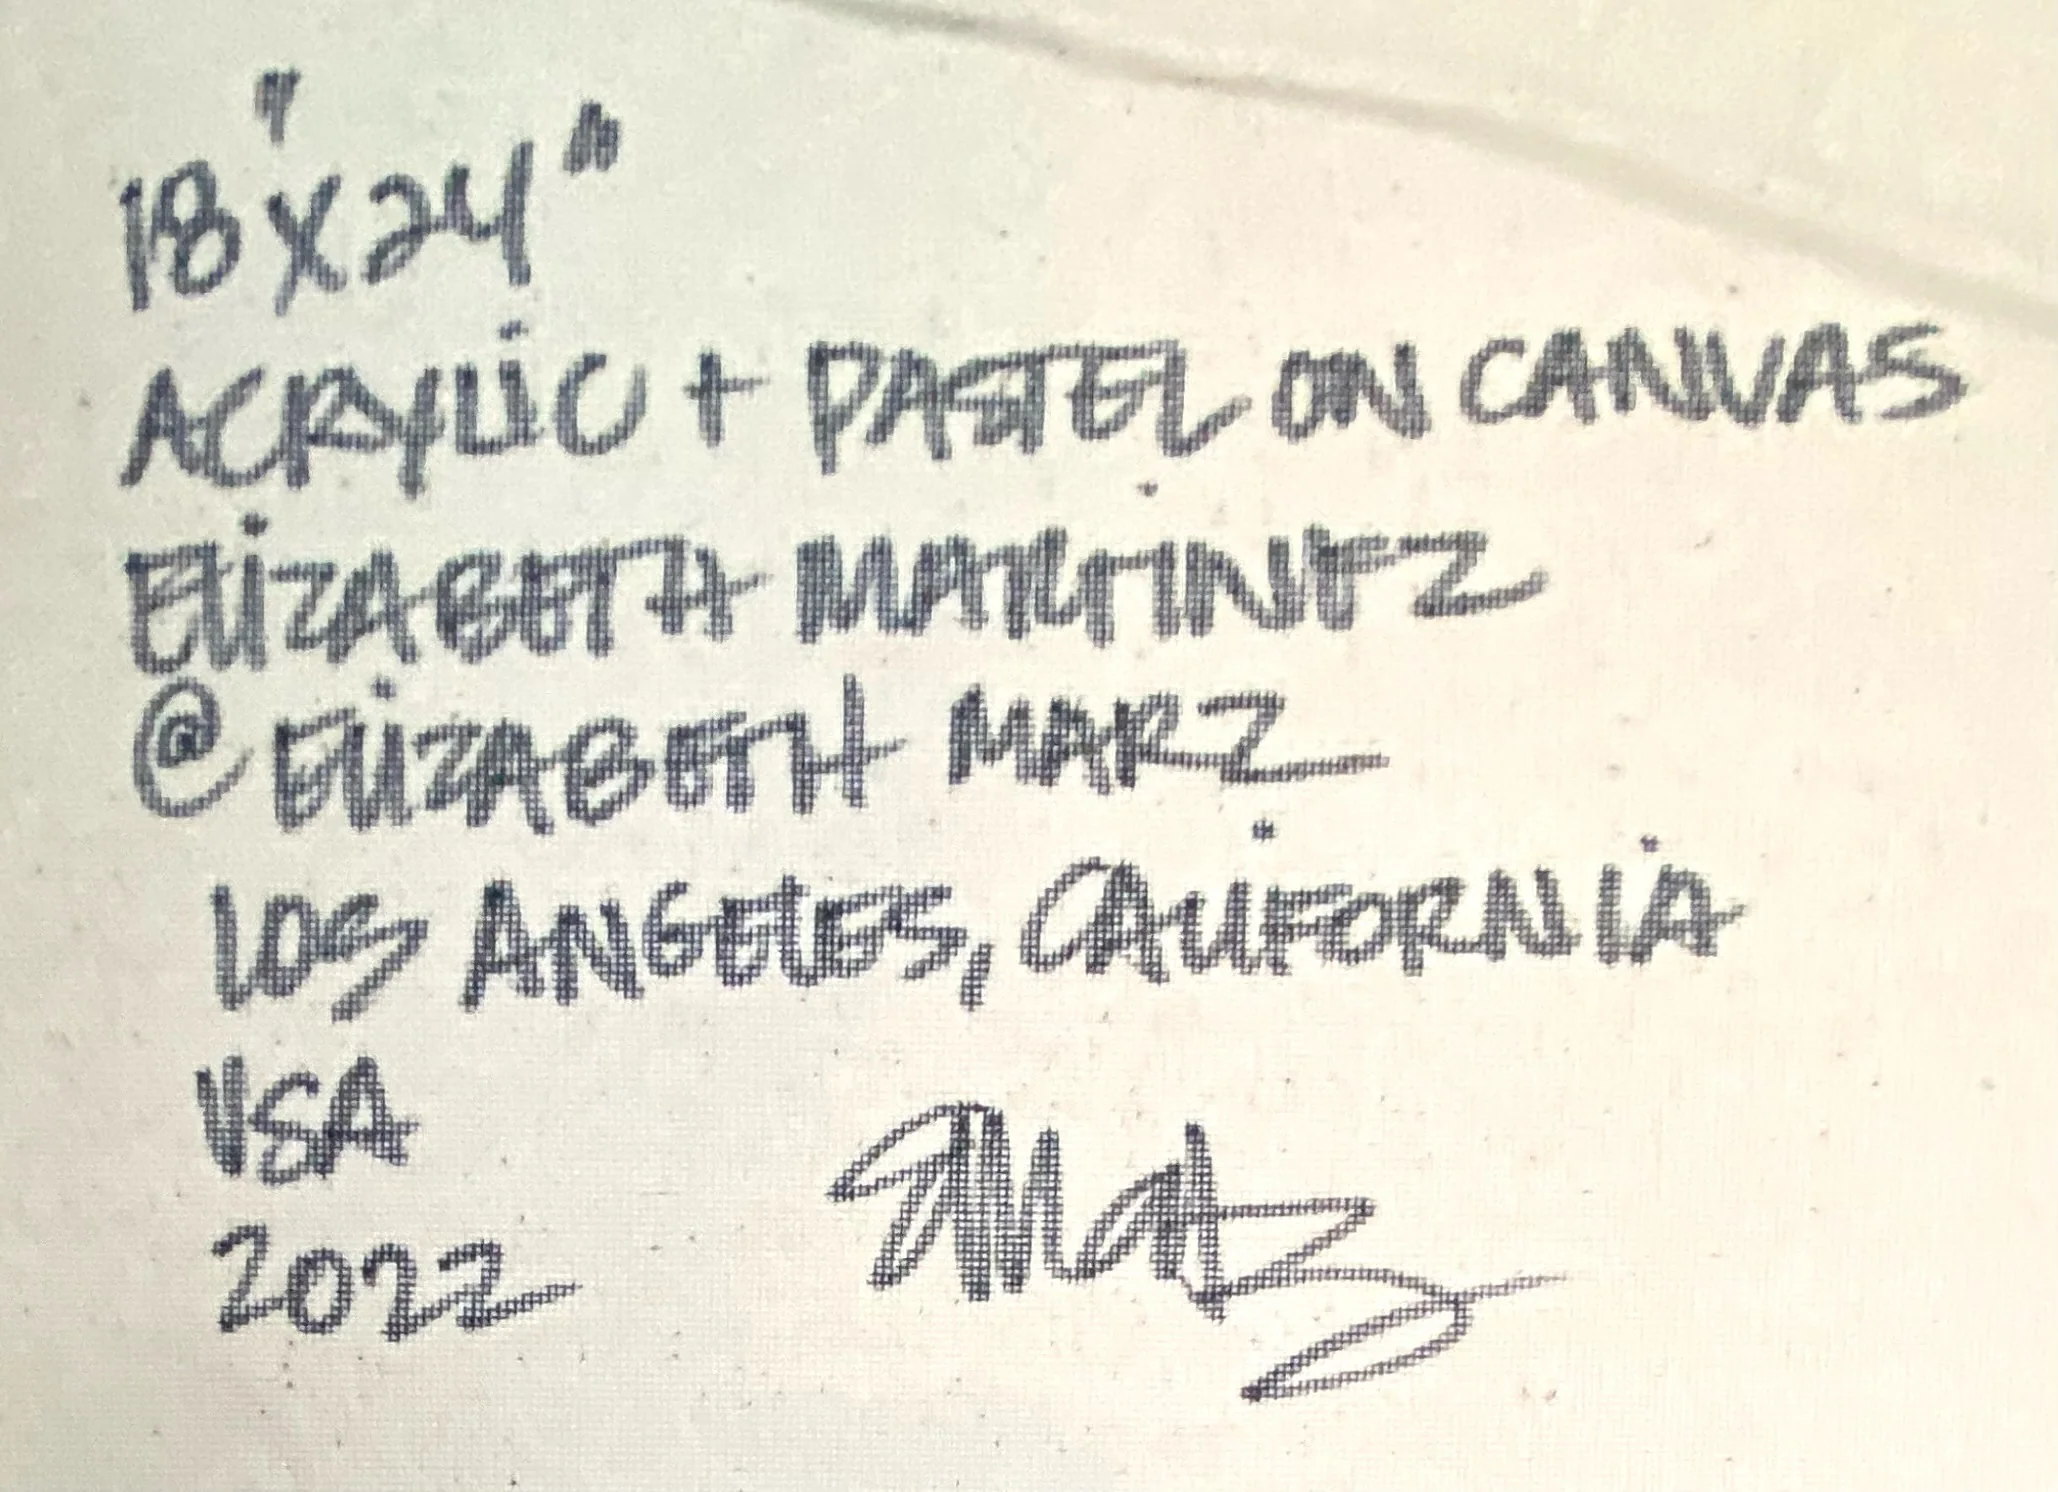 18" x 24"
ACRYLiC + PASTEL ON CANVAS
ELiZABETH MARTiNEZ
@ELiZABETH MARZ
LOS ANGELES, CALiFORNiA
USA
2022